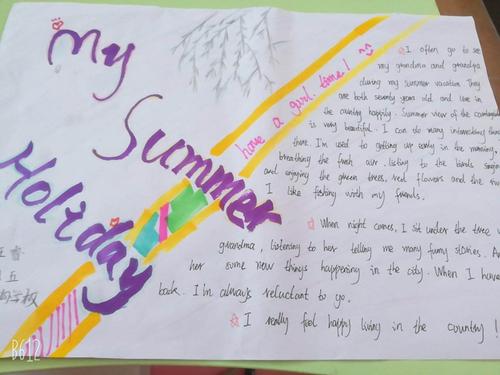 My
Summer
Holiday
have a girl time!
I often go to see
my grandma and grandpa
during my summer vacation. They
are both seventy years old and live in
the country happily. Summer view of the countryside
is very beautiful. I can do many interesting things
there. I'm used to getting up early in the morning,
breathing the fresh air. listing to the birds singing
and enjoying the green trees, red flowers and the
I like fishing with my friends.
When night comes, I sit under the tree
grandma, listening to her telling me many funny stories. And
her some new things happening in the city. When I have
back. I'm always reluctant to go.
I really feel happy living in the country!
学校
B612